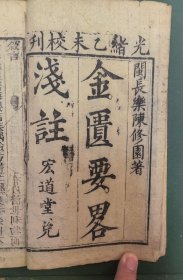 光緒乙未校刊
閩長樂陳修園著
金匱要畧
淺註
宏道堂兌